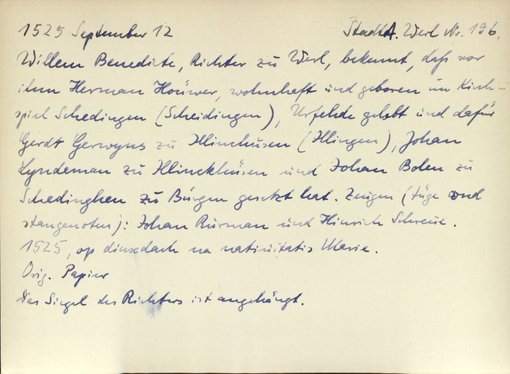 1525 September 12 StadtA. Werl Nr. 196.
Willem Benedicte, Richter zu Werl, bekennt, daß vor
ihm Herman Houwer, wohnhaft und geboren im Kirch-
spiel Schedingen (Scheidingen), Urfehde gelobt und dafür
Gerdt Gerwyns zu (Illingen), Johan
Lyndeman zu und Johan Bolen zu
Schedinghen zu Bürgen gesetzt hat. Zeugen (tüge und
stangenoten): Johan Rurman und Hinrich
1525, op dinxdach na nativitatis Marie.
Orig. Papier
Das Siegel des Richters ist angehängt.